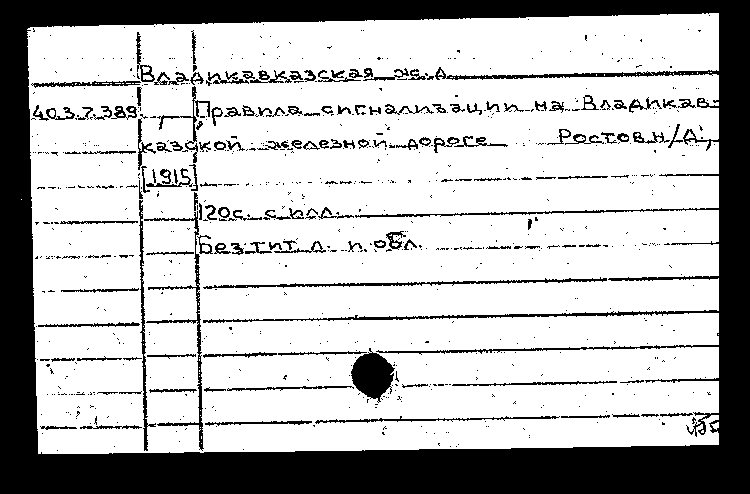 Владикавказская ж.д.
40.3.7.389 Правила сигнализации на Владикав-
казской железной дороге Ростов н/Д.,
[1915]
120с. с илл.
Без тит. л. и обл.